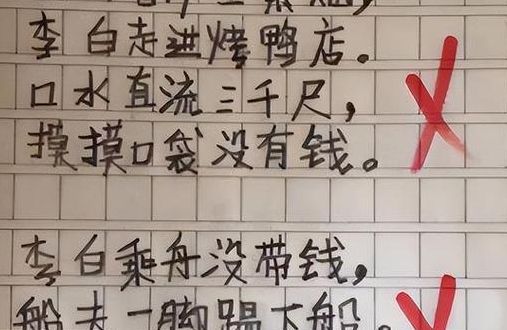 李白走进烤鸭店。
口水直流三千尺，
摸摸口袋没有钱。
李白乘舟没带钱，
船夫一脚踢下船。